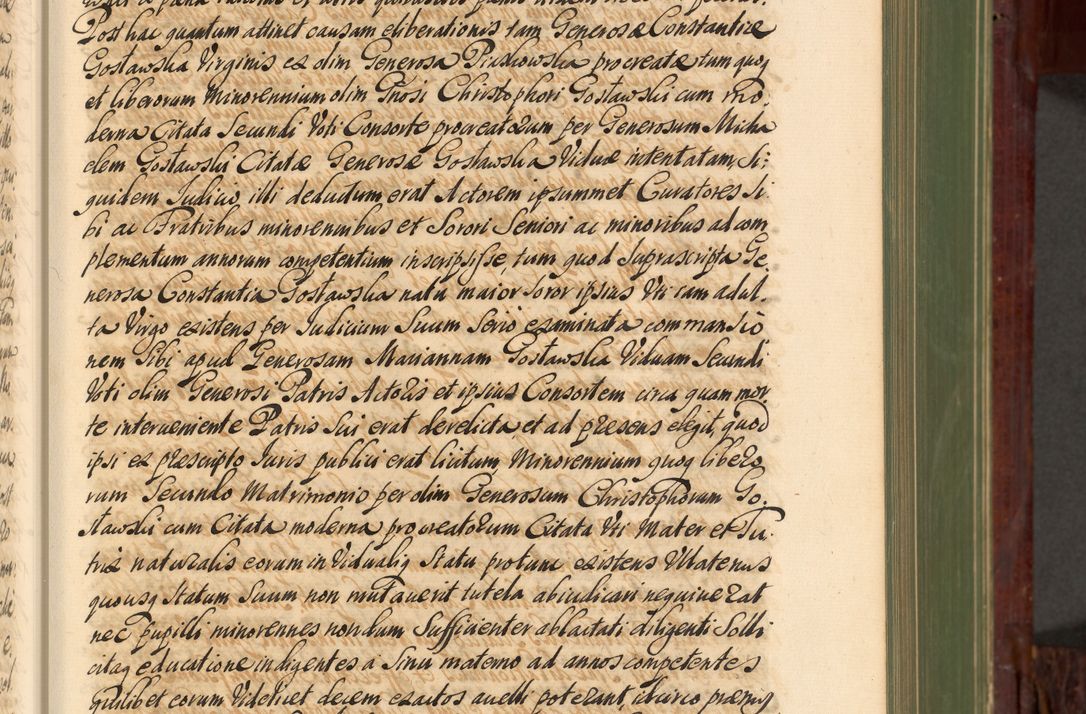 Posthac quantum attinet causam eliberationis tam Generosæ Constantiæ
Gosławska Virginis ex olim Generosa Piaskowska procreatæ tum quoq
et liberorum Minorennium olim Gnosi Christophori Gosławski cum mo,
derna Citata Secundi Voti Consorte procreatorum per Generosum Micha
elem Gosławski Citatæ Generosæ Gosławska Viduæ intentatam, Si:
quidem Judicio, illi deductum erat Actorem ipsummet Curatores Si
bi ac Fratribus minorennibus et Sorori Seniori ac minoribus ad com
plementum annorum competentium inscripsisse, tum quod Suprascripta Ge,
nerosa Constantia Gosławska natu maior Soror ipsius Uti iam adul,
ta Virgo existens per Judicium Suum Serio examinata commansio
nem Sibi apud Generosam Mariannam Gosławska Viduam Secundi
Voti olim Generosi Patris Actoris et ipsius Consortem circa quam mor,
te interveniente Patris Sui erat derelicta, et ad præsens elegit, quod
ipsi ex præscripto Juris publici erat licitum, Minorennium quoq libero
rum Secundo Matrimonio per olim Generosum Christophorum Go,
sławski cum Citata moderna procreatorum Citata Uti Mater et Tu,
trix naturalis eorum in Vidualiq Statu protunc existens Utatenus
quousq Statum Suum non mutaverit tutela abiudicari nequiverat
nec pupilli minorennes nondum Sufficienter ablactati diligenti Solli
citaq educatione indigentes a Sinu materno ad annos competentes
quilibet eorum Videlicet decem exactos avelli poterant, idcirco præmis